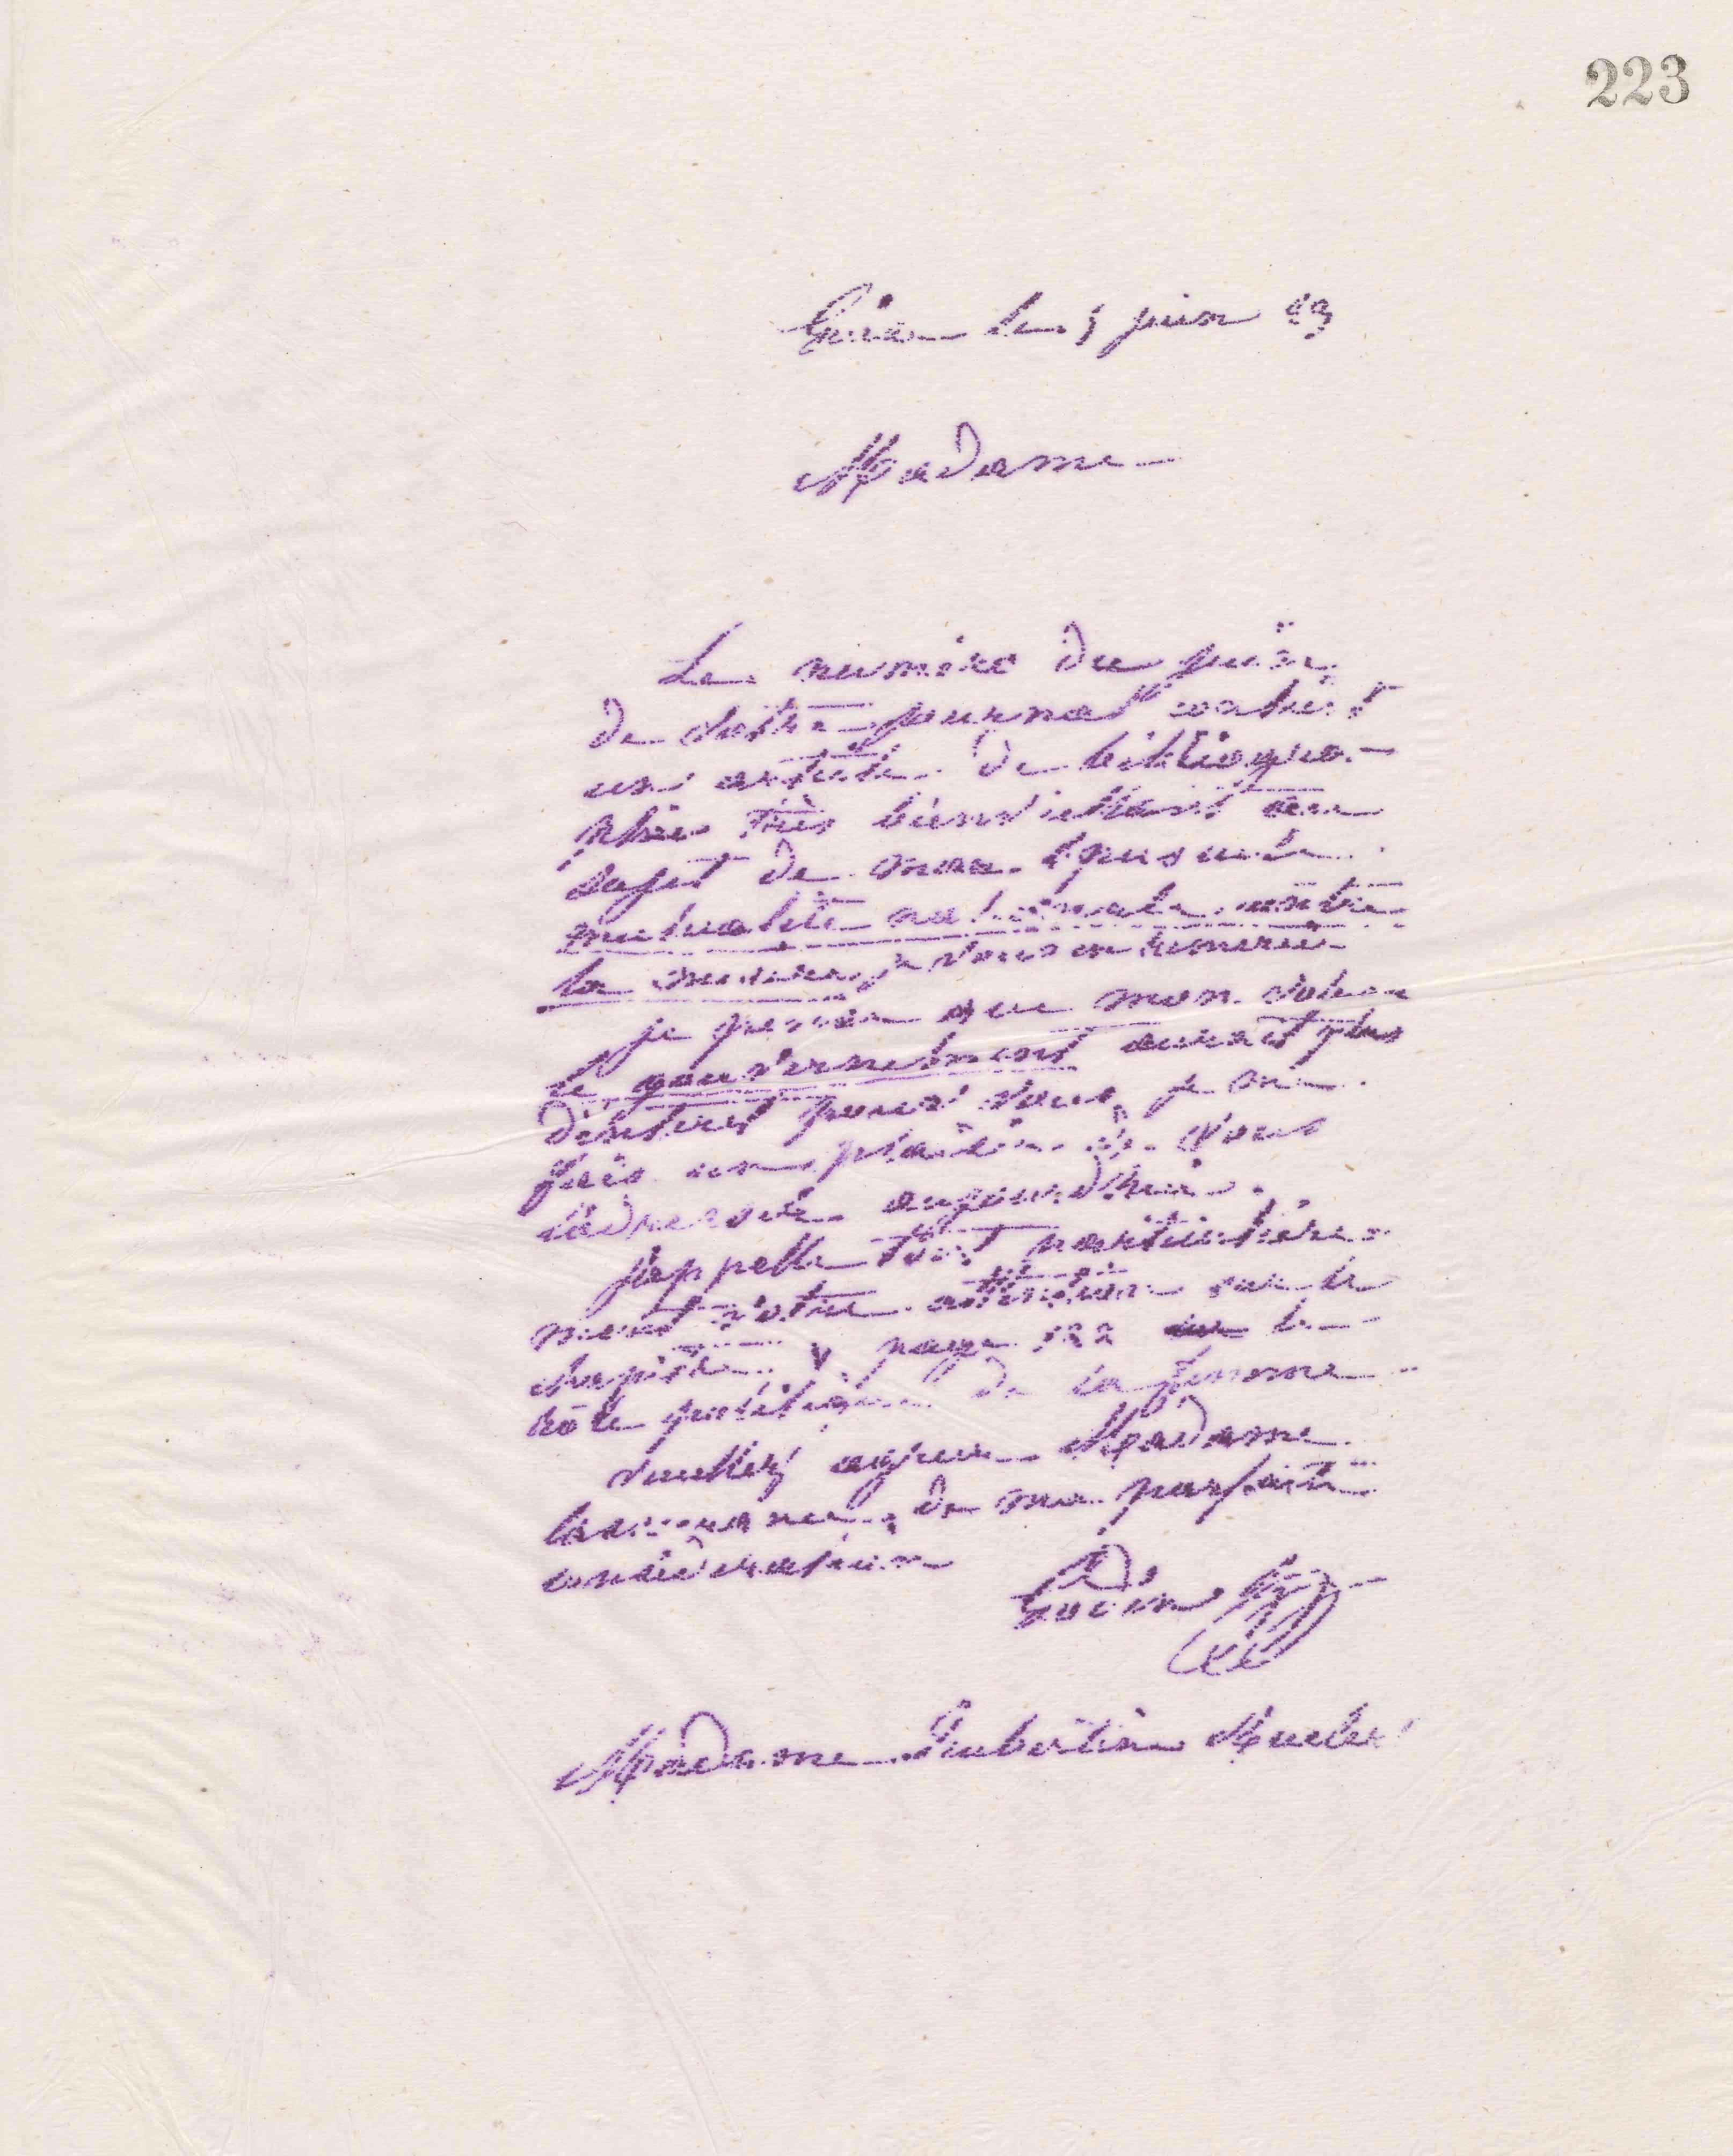 223
Guise le 5 juin 83
Madame
Le numéro de juin
de votre journal contient
un article de bibliogra-
phie très bienveillant au
sujet de ma brochure
mutualité nationale contre
la misère, je vous en remercie
je pense que mon volume
le gouvernement aurait plus
d'intérêt pour vous, je me
fais un plaisir de vous
l'adresser aujourd'hui.
J'appelle tout particulière-
ment votre attention sur le
chapitre V page 122 le
rôle politique de la femme
veuillez agréer Madame
l'assurance de ma parfaite
considération
Godin
Madame Hubertine Auclert